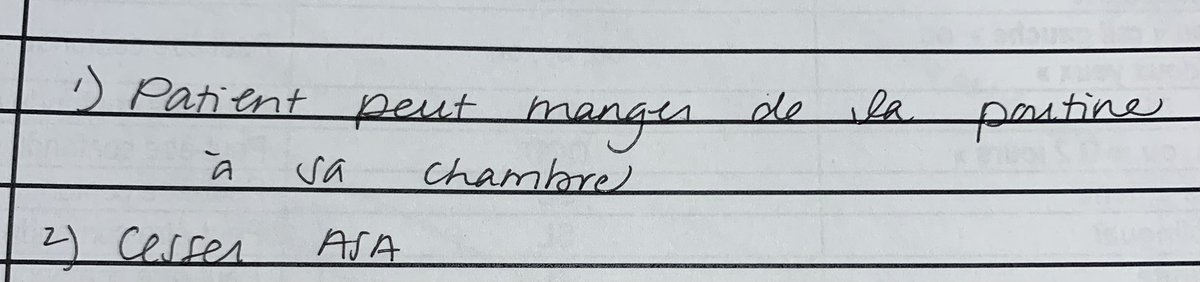 1) Patient peut manger de la poutine
à sa chambre
2) Cesser ASA